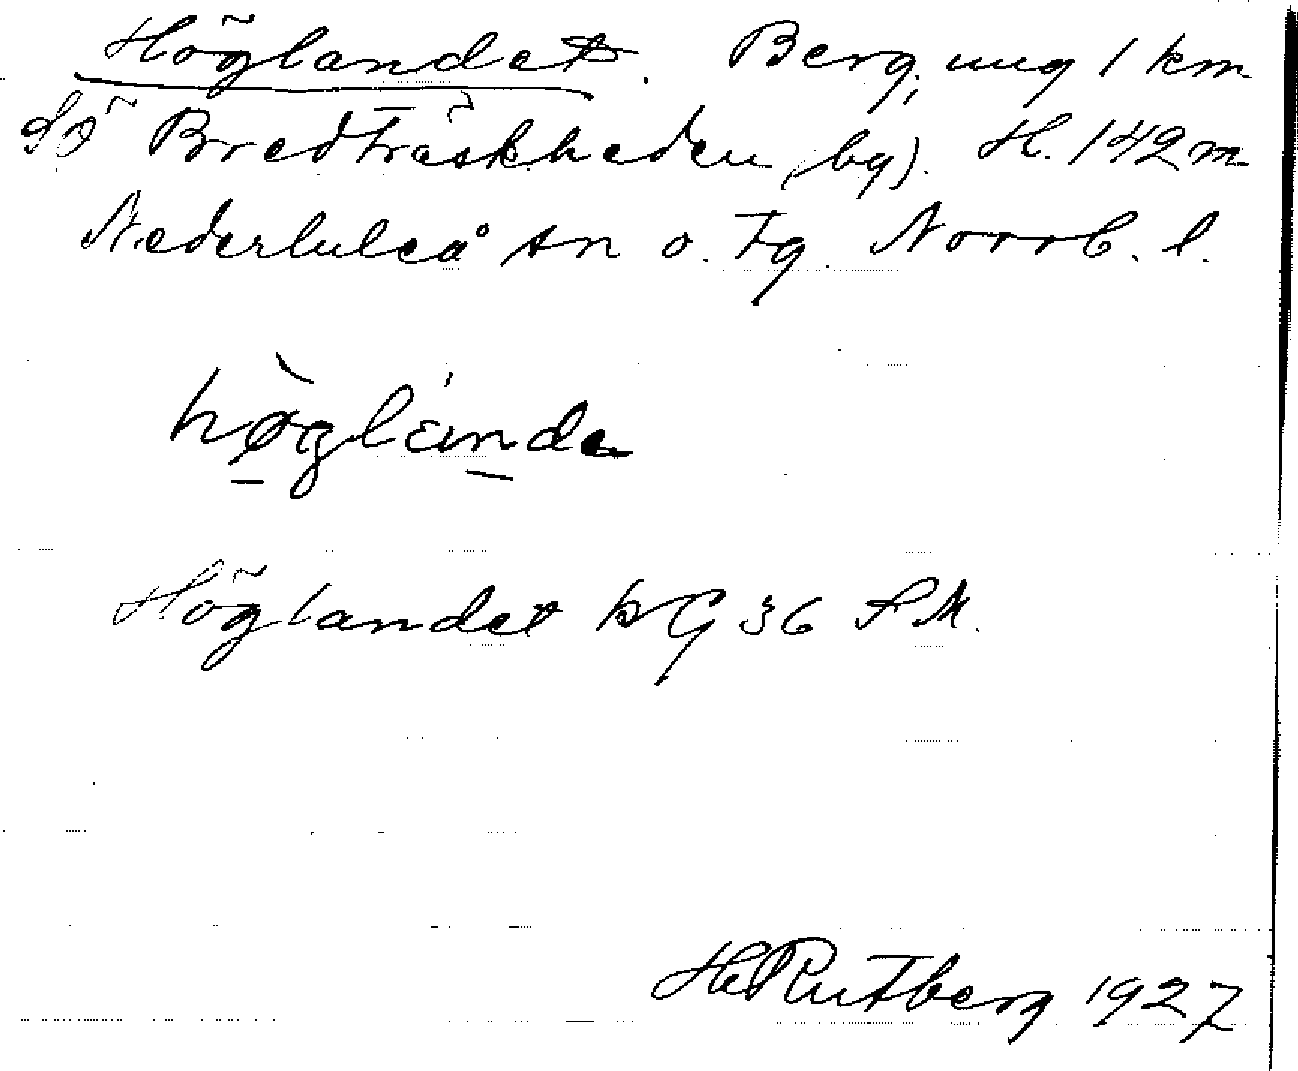 Höglandet. Berg, ung 1 km
SÖ Bredträskheden (bg). H. 142 m
Nederluleå sn o. tg. Norrb. l.
hø̀glánda
Höglandet bG 36 SM.
H Rutberg 1927